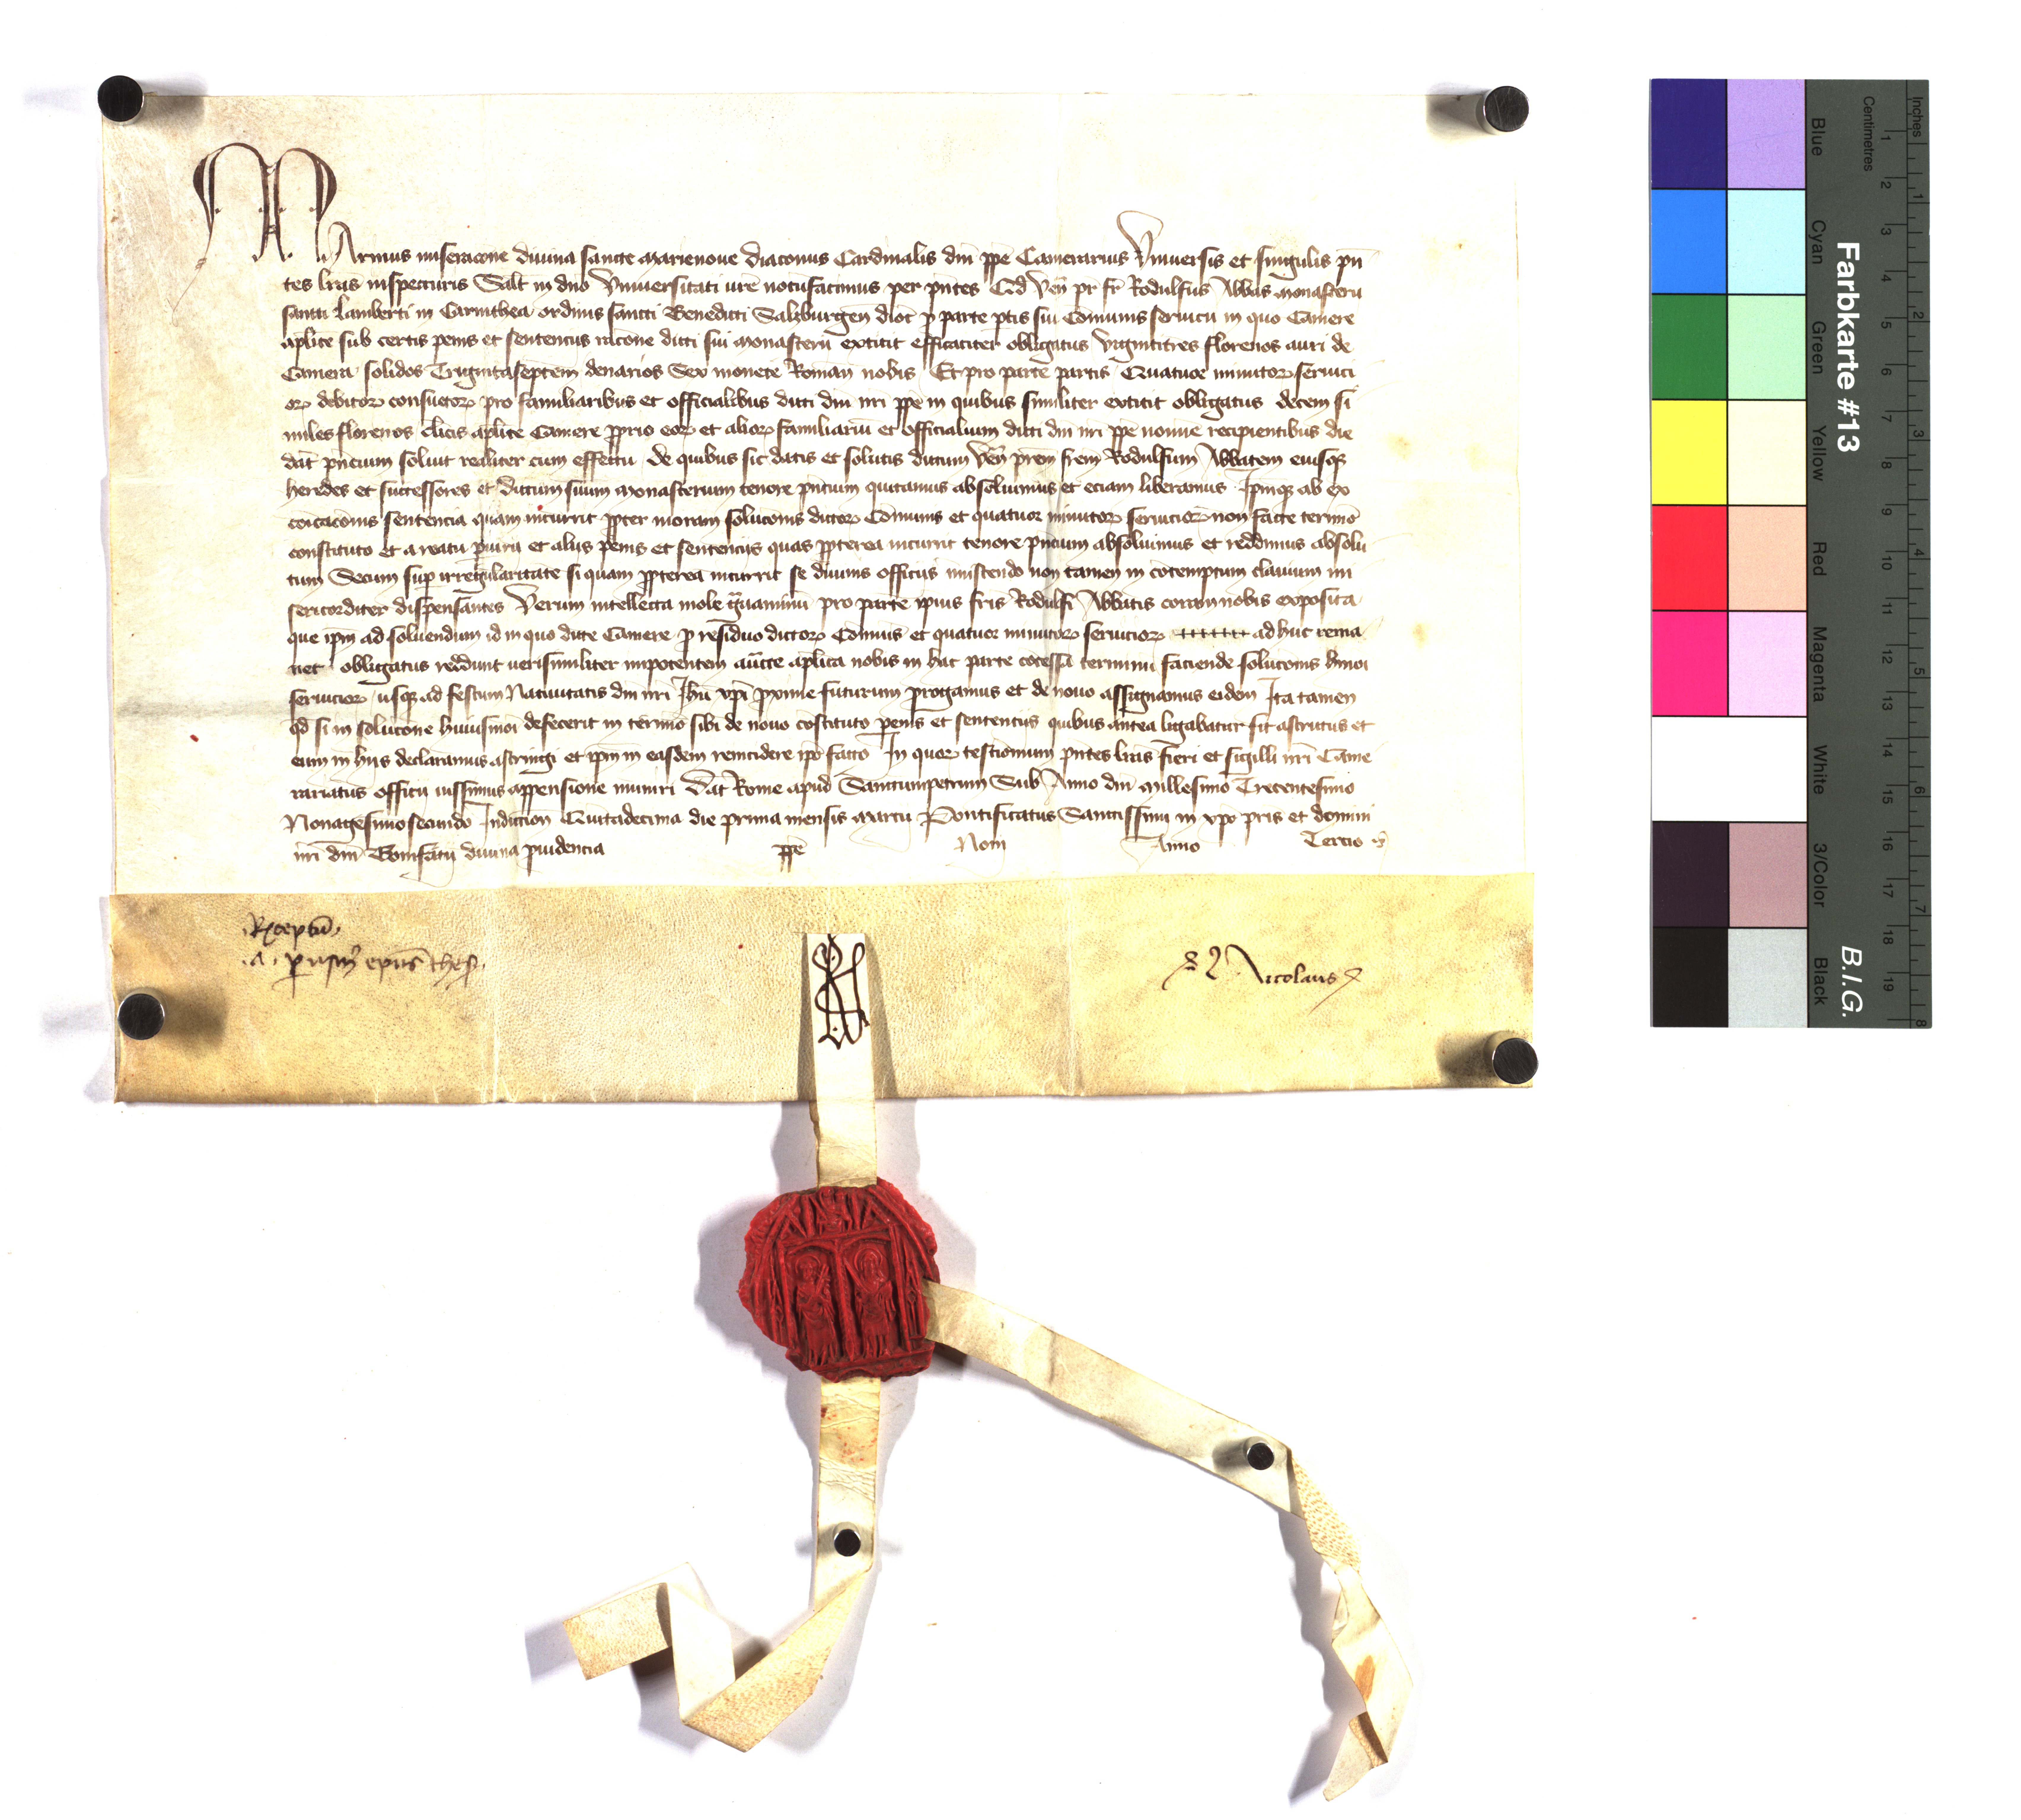 Marinus miseracone divina sancte Marienove diaconus Cardinalis dni ppe Camerarius Universis et singulis pn
tes lras inspecturis Salt in dno Universitati vre notufacimus per pntes Qd Ven pr fr Rodulfus Abbas monasterii
sancti Lamberti in Carinthea ordinis sancti Benedicti Salzburgen dioc p parte ptis sui Comunis servicii in quo Camere
aplice sub certis penis et sentenciis racone dicti sui monasterii extitit efficaciter obligatus vigintitres florenos auri de
Camera solidos Trigintaseptem denarios Sex monete Roman nobis Et pro parte partis Quatuor minutor servici
or debitor consuetor pro familiaribus et officialibus dicti dni nri ppe in quibus similiter extitit obligatus decem si
miles florenos clicis aplice Camere pprio eor et alior familiariu et officialium dicti dni nri ppe nomine recipientibus die
dat pncium solvit realiter cum effectu de quibus sic datis et solutis dictum Ven prem frem Rodulfum Abbatem eiusq
heredes et successores et dictum suum monasterium tenore pncium quitamus absolvimus et eciam liberamus Ipmq ab ex
coicaconis sentencia quam incurrit ppter moram soluconis dictor Comunis et quatuor minutor servicior non facte termio
constituto et a reatu piurii et aliis penis et sentenciis quas ppterea incurrit tenore pncium absolvimus et reddimus absolu
tum Secum sup irregularitate si quam ppterea incurrit se divinis officiis miscendo non tamen in cotemptum clavium mi
sericorditer dispensantes Verum intellecta mole gvaminu pro parte ipius fris Rodulfi Abbatis corram nobis exposita
que ipm ad solvendum id in quo dicte Camere p residuo dictor Comunis et quatuor minutor servicior ad huc rema
net obligatus reddunt verisimiliter impotentem aucte aplica nobis in hac parte cocessa terminu faciende soluconis hmoi
servicior usq ad festum Nativitatis dni nri Ihu xpi pxime futurum progamus et de novo assignamus eidem Ita tamen
qd si in solucone huiusmoi defecerit in termio sibi de novo costituto penis et sentenciis quibus antea ligabatur sit astrictus et
eum in hiis declaramus astringi et ipm in easdem reincidere ipo facto In quor testimonium pntes lras fieri et sigilli nri Came
rariatus officii iussimus appensione muniri Dat Rome apud Sanctumpetrum Sub Anno dni Millesimo Trecentesimo
Nonagesimosecundo Indiction Quitadecima die prima mensis Marcii Pontificatus Sanctissimi in xpo pris et domini
nri dni Bonifacii divina pvidencia ppe Noni Anno Tercio
Rceptu
.A. epus thes.
Nicolaus
Farbkarte #13
B.I.G.
Inches
Centimetres
1 2 3 4 5 6 7 8 9 10 11 12 13 14 15 16 17 18 19
1 2 3 4 5 6 7 8
Blue
Cyan
Green
Yellow
Red
Magenta
White
3/Color
Black